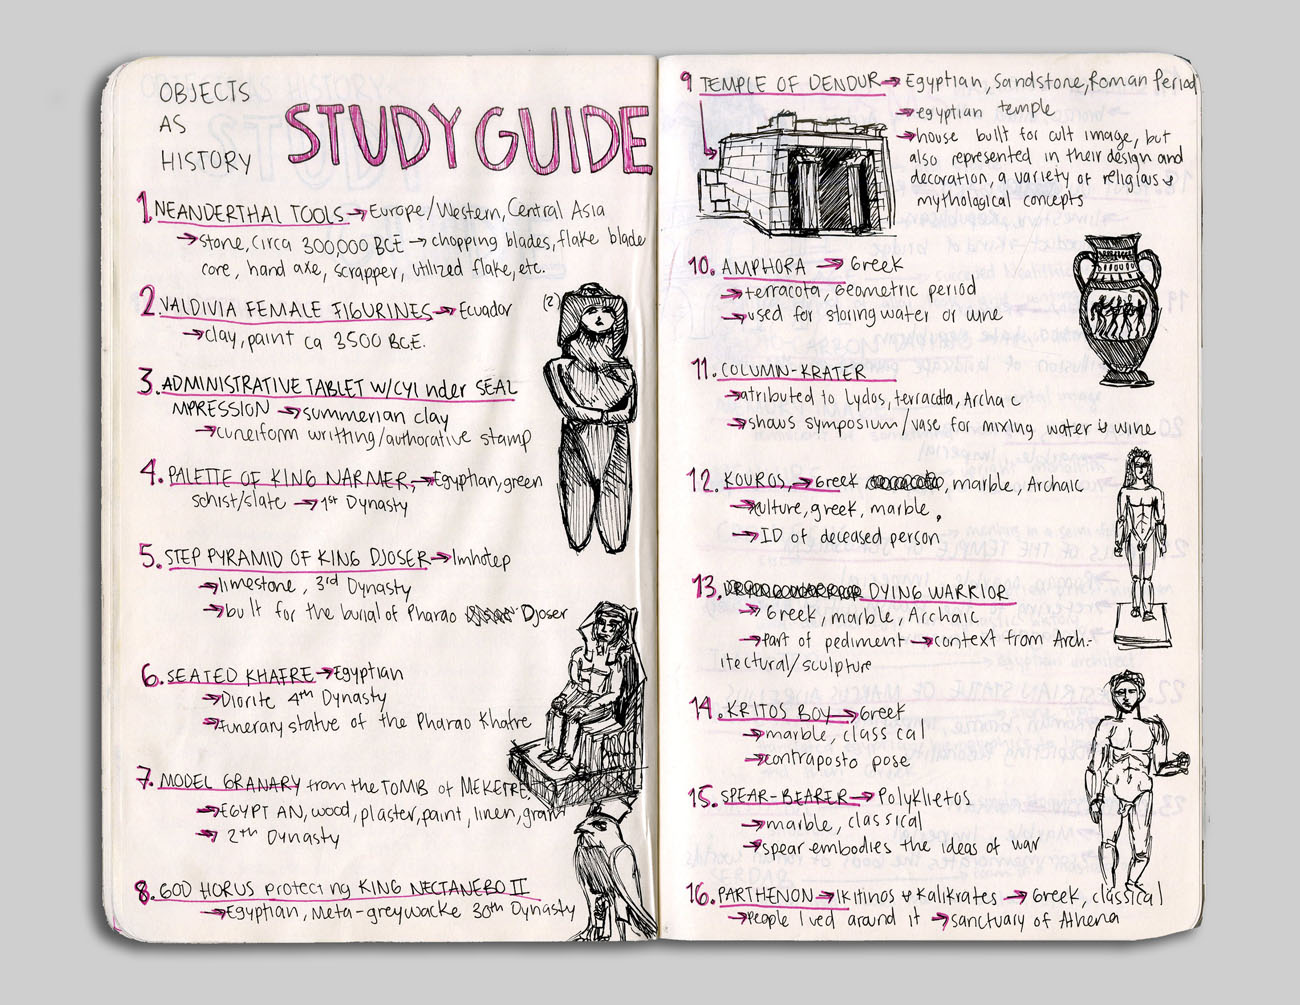 OBJECTS
AS
HISTORY
STUDY GUIDE
1. NEANDERTHAL TOOLS → Europe/Western, Central Asia
→ stone, circa 300,000 BCE → chopping blades, flake blade
core, hand axe, scrapper, utilized flake, etc.
2. VALDIVIA FEMALE FIGURINES → Ecuador
→ clay, paint ca 3500 BCE.
(2)
3. ADMINISTRATIVE TABLET W/CYlinder SEAL
MPRESSION → summerian clay
→ cuneiform writhing/authorative stamp
4. PALETTE OF KING NARMER, → Egyptian, green
schist/slate → 1st Dynasty
5. STEP PYRAMID OF KING DJOSER → Imhotep
→ limestone, 3rd Dynasty
→ built for the burial of Pharao Djoser
6. SEATED KHAFRE → Egyptian
→ Diorite 4th Dynasty
→ funerary statue of the Pharao Khafre
7. MODEL GRANARY from the TOMB of MEKETRE,
→ EGYPTIAN, wood, plaster, paint, linen, grain
→ 2th Dynasty
8. GOD HORUS protecting KING NECTANEBO II
→ Egyptian, Meta-greywacke 30th Dynasty
9 TEMPLE OF DENDUR → Egyptian, Sandstone, Roman Period
→ egyptian temple
→ house built for cult image, but
also represented in their design and
decoration, a variety of religious &
mythological concepts
10. AMPHORA → Greek
→ terracota, Geometric period
→ used for storing water or wine
11. COLUMN-KRATER
→ atributed to Lydos, terracotta, Archaic
→ shows symposium/vase for mixing water & wine
12. KOUROS, → Greek , marble, Archaic
→ culture, greek, marble,
→ ID of deceased person
13. DYING WARRIOR
→ Greek, marble, Archaic
→ Part of pediment → context from Arch-
itectural/sculpture
14. KRITOS BOY → Greek
→ marble, classical
→ contraposto pose
15. SPEAR-BEARER → Polyklietos
→ marble, classical
→ spear embodies the ideas of war
16. PARTHENON → Ikitinos & Kalikrates → Greek, classical
→ people lived around it → sanctuary of Athena